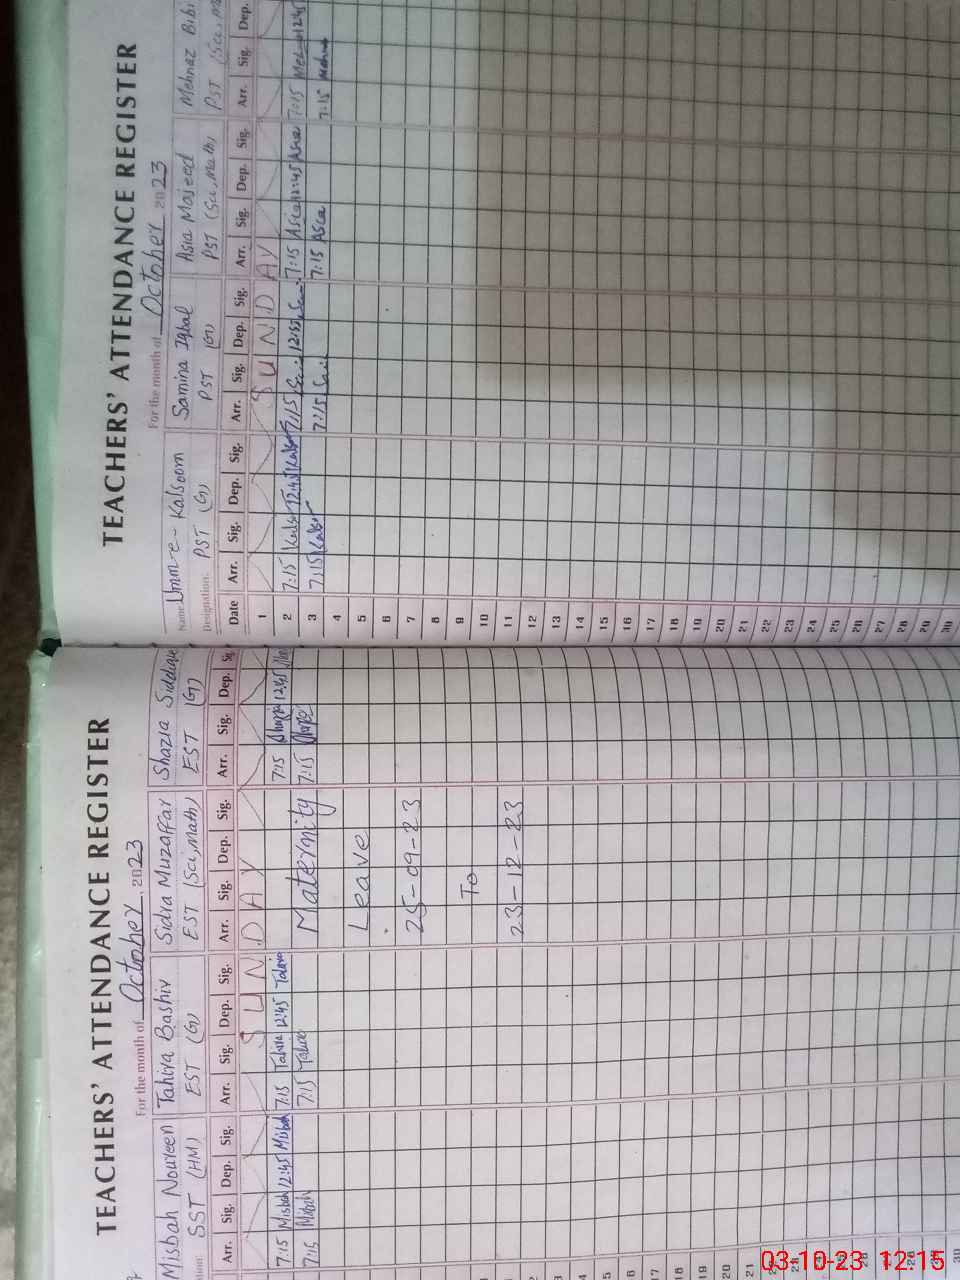 TEACHERS' ATTENDANCE REGISTER
For the month of October, 2023
Misbah Noureen Tahira Bashir Sidra Muzaffar Shazia Siddique
SST (HM) EST (G) EST (Sci, Math) EST (G)
Arr. Sig. Dep. Sig. Arr. Sig. Dep. Sig. Arr. Sig. Dep. Sig. Arr. Sig. Dep. Sig.
S U N D A Y
7:15 Misbah 12:45 Misbah 7:15 Tahira 12:45 Tahira 7:15 12:45
7:15 Misbah 7:15 Tahira Maternity 7:15
Leave
25-09-23
To
23-12-23
TEACHERS' ATTENDANCE REGISTER
For the month of October 2023
Name Umm-e-Kalsoom Samina Iqbal Asia Majeed Mehnaz Bibi
Designation: PST (G) PST (G) PST (Sci, Math) PST
Date Arr. Sig. Dep. Sig. Arr. Sig. Dep. Sig. Arr. Sig. Dep. Sig. Arr. Sig. Dep.
1 S U N D A Y
2 7:15 12:45 7:15 12:45 7:15 12:45 7:15 12:45
3 7:15 7:15 7:15 7:15
4
5
6
7
8
9
10
11
12
13
14
15
16
17
18
19
20
21
22
23
24
25
26
27
28
29
30
03-10-23 12:15